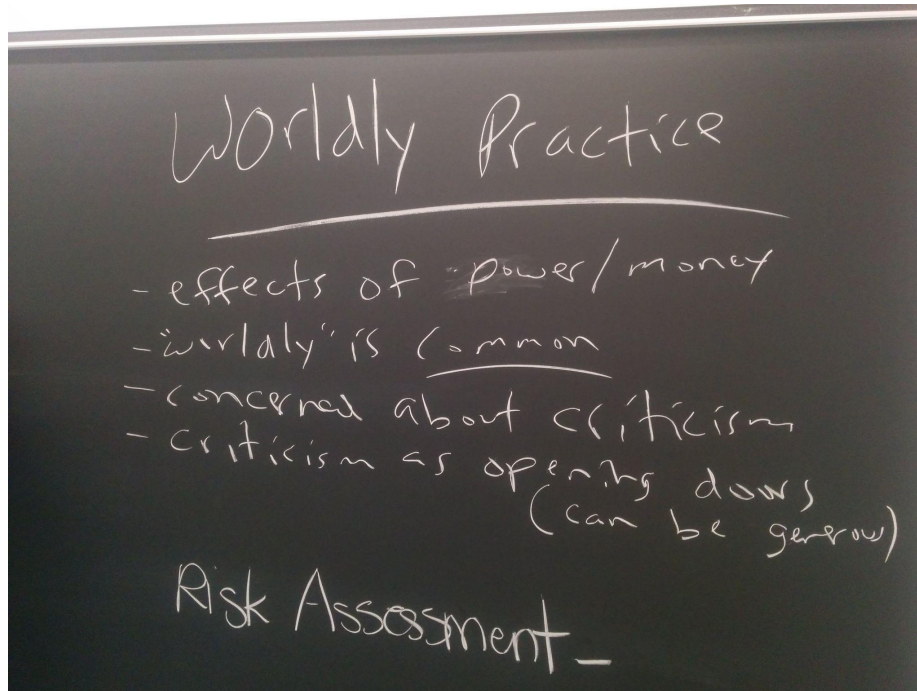 Worldly Practice
- effects of power/money
- "worldly" is common
- concerned about criticism
- criticism as opening doors
(can be generous)
Risk Assessment -